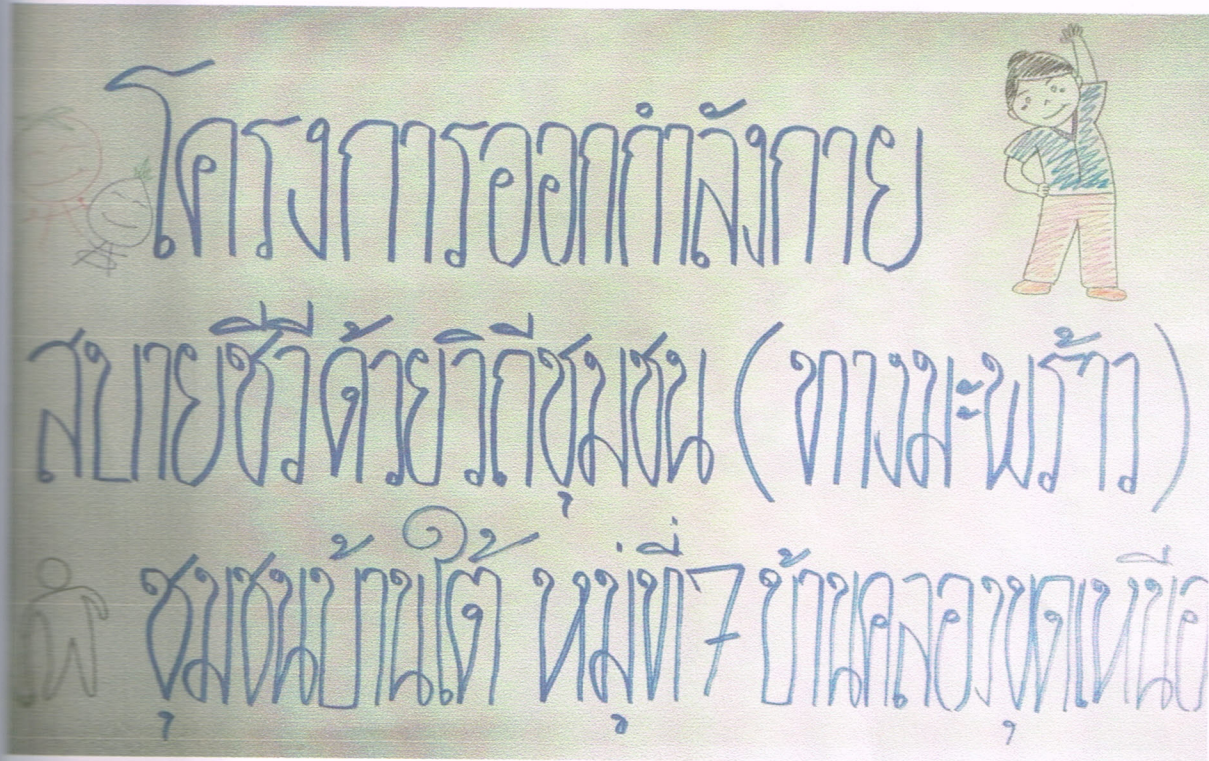 โครงการออกกำลังกาย
สบายชีวีด้วยวิถีชุมชน (ทางมะพร้าว)
ชุมชนบ้านใต้ หมู่ที่ 7 บ้านคลองขุดเหนือ